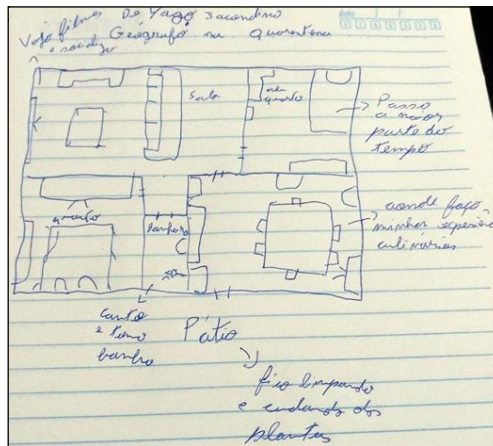 De Yago Secondino
Vejo filmes
e socializo
Geógrafo na Quarentena
Sala
meu
quarto
Passo
a maior
parte do
tempo
quarto
banheiro
aonde faço
minhas experiências
culinárias
canto
e tomo
banho
Pátio
fico limpando
e cuidando das
plantas